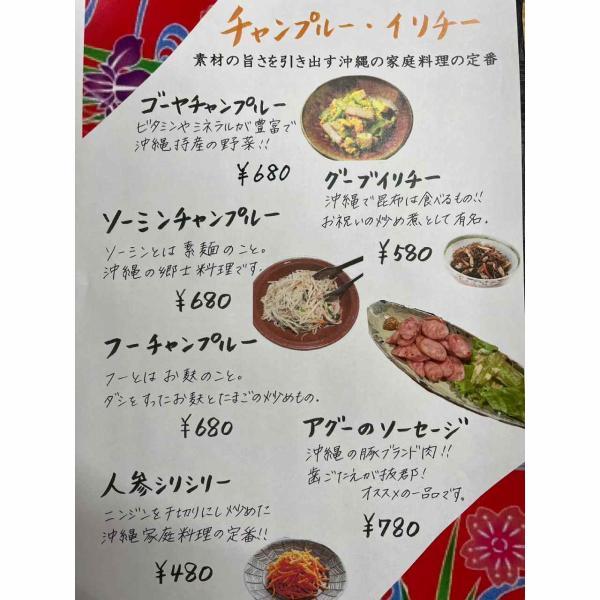 チャンプルー・イリチー
素材の旨さを引き出す沖縄の家庭料理の定番
ゴーヤチャンプルー
ビタミンやミネラルが豊富で
沖縄特産の野菜!!
¥680
グーブイリチー
沖縄で昆布は食べるもの!!
お祝いの炒め煮として有名.
¥580
ソーミンチャンプルー
ソーミンとは素麺のこと。
沖縄の郷土料理です.
¥680
フーチャンプルー
フーとはお麩のこと。
ダシをすったお麩とたまごの炒めもの.
¥680
アグーのソーセージ
沖縄の豚ブランド肉!!
歯ごたえが抜群!
オススメの一品です。
¥780
人参シリシリー
ニンジンを千切りにし炒めた
沖縄家庭料理の定番!!
¥480